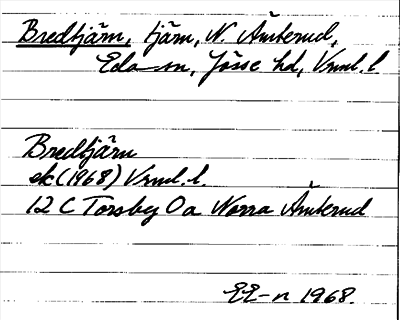 Bredtjärn, tjärn, N. Åmterud,
Eda sn, Jösse hd, Vrml. l
Bredtjärn
ek (1968) Vrml. l.
12 C Torsby 0a Norra Åmterud
EE-n 1968.